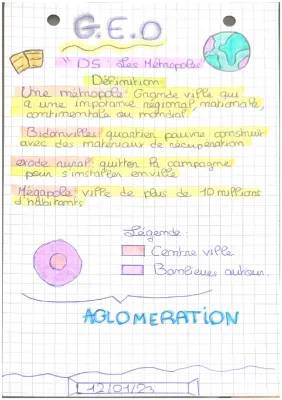 G.E.O
"DS Les Métropoles"
Définition
Une métropole: Grande ville qui
a une importance régional, nationale,
continentale ou mondial.
Bidonvilles quartier pauvre construit
avec des matériaux de récupération
exode rural quitter la campagne
pour s'installer en ville
Mégapole ville de plus de 10 millions
d'habitants
Légende:
Centre ville
Banlieues autour.
AGLOMERATION
12/01/23